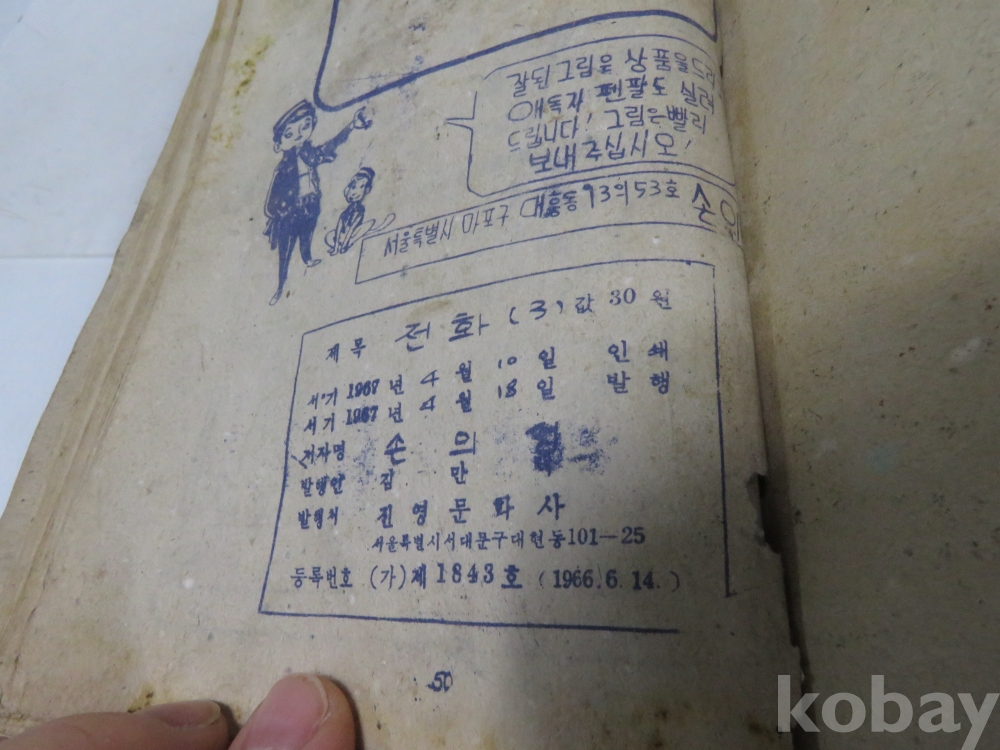 잘된 그림은 상품을 드려
애독자 펜팔도 실려
드립니다! 그림은 빨리
보내주십시오!
서울특별시 마포구 대흥동 13의53호 손
제목 전화 (3) 값 30 원
서기 1967 년 4 월 10 일 인쇄
서기 1967 년 4 월 18 일 발행
저자명 손 의
발행인 김 만
발행처 진영문화사
서울특별시서대문구대현동101—25
등록번호 (가) 제 1843 호 (1966.6.14.)
50
kobay